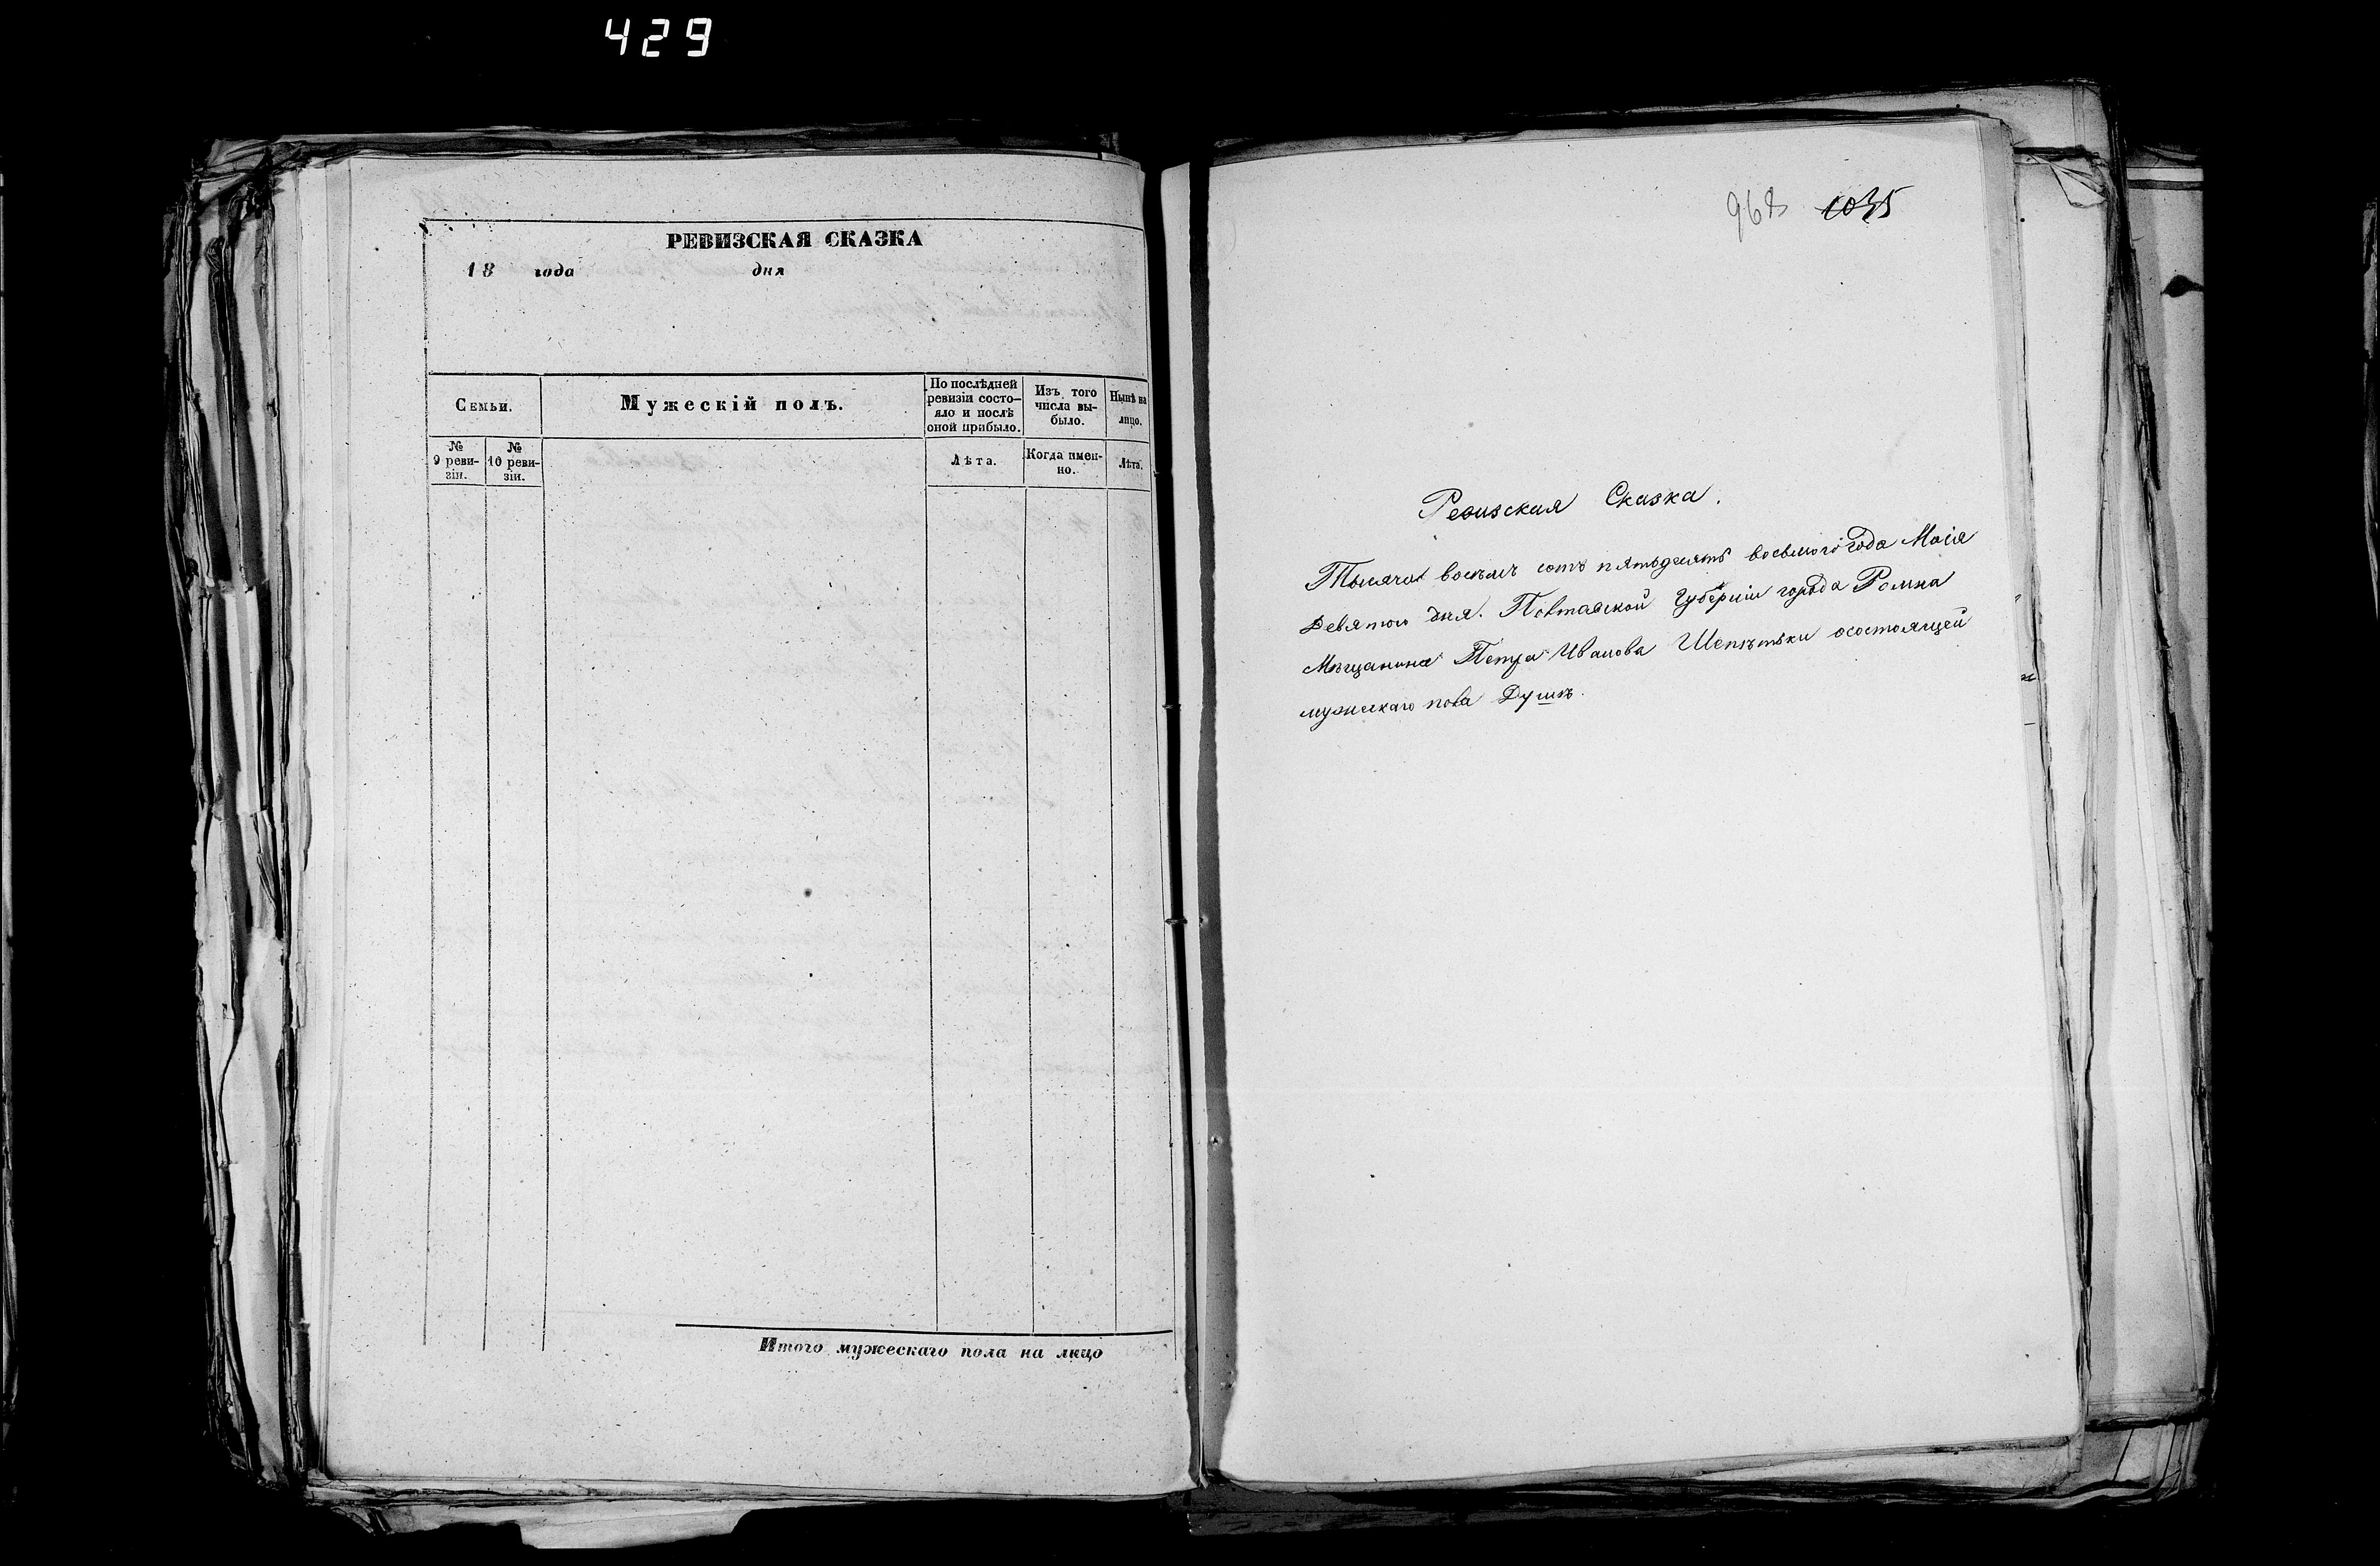 429
РЕВИЗСКАЯ СКАЗКА
18 года дня
Семьи.
Мужескій полъ.
По послѣдней
ревизіи состо-
яло и послѣ
оной прибыло.
Изъ того
числа вы-
было.
Нынѣ на
лицо.
№
9 реви-
зіи.
№
10 реви-
зіи.
Лѣта.
Когда имен-
но.
Лѣта.
Итого мужескаго пола на лицо
968 1035
Ревизская Сказка.
Тысяча восемь сотъ пятьдесятъ восьмого года Маія
девятого дня. Полтавской Губерніи города Ромна
Мѣщанина Петра Иванова Шепѣтьки осостоящей
мужескаго пола Душѣ.